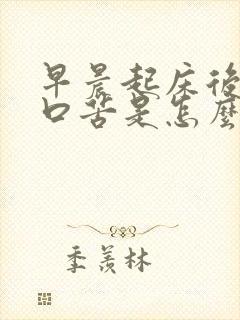 早晨起床後
口苦是怎麼
季羨林